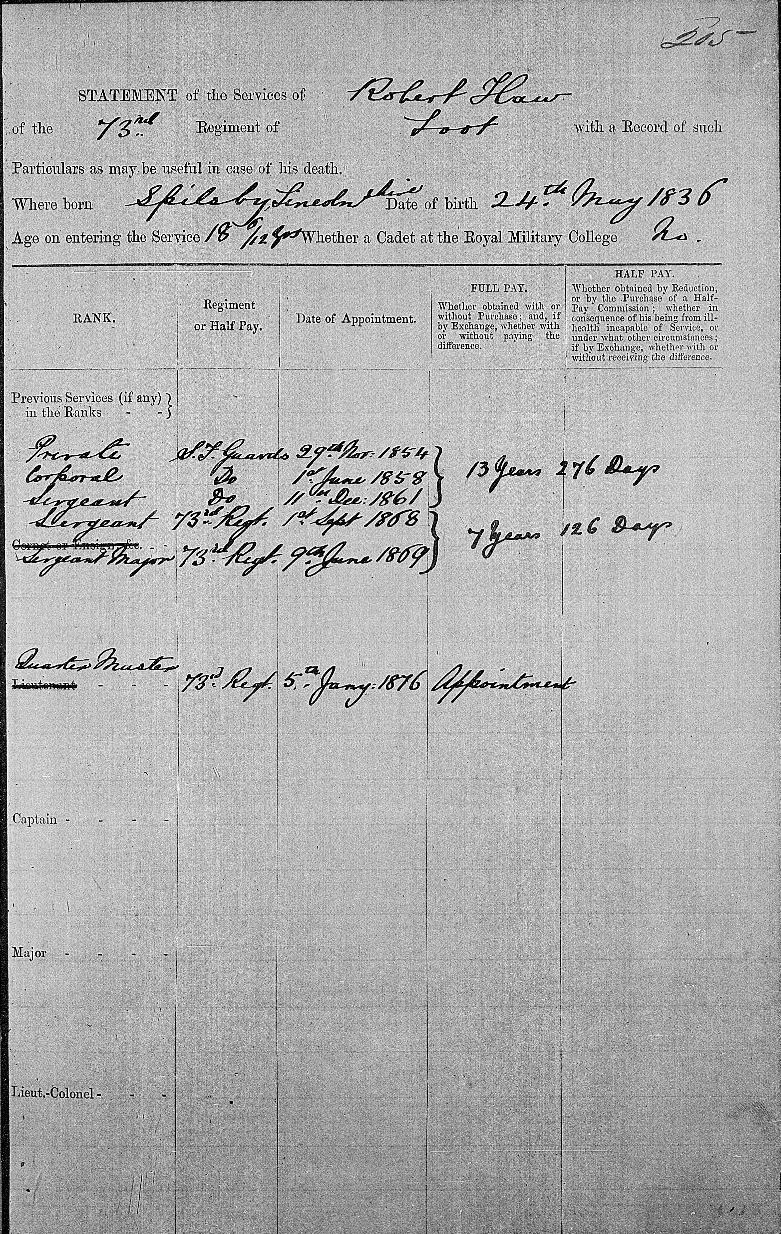 205
STATEMENT of the Services of Robert Haw
of the 73rd Regiment of Foot with a Record of such
Particulars as may be useful in case of his death.
Where born Spilsby Lincolnshire Date of birth 24th May 1836
Age on entering the Service 18 6/12 yrs Whether a Cadet at the Royal Military College No.
RANK.
Regiment
or Half Pay.
Date of Appointment.
FULL PAY.
Whether obtained with or
without Purchase; and, if
by Exchange, whether with
or without paying the
difference.
HALF PAY.
Whether obtained by Reduction,
or by the Purchase of a Half-
Pay Commission; whether in
consequence of his being from ill-
health incapable of Service, or
under what other circumstances;
if by Exchange, whether with or
without receiving the difference.
Previous Services (if any) }
in the Ranks - - }
Private S.F. Guards 29th Nov: 1854
Corporal Do 1st June 1858 13 Years 276 Days
Sergeant Do 11th Dec: 1861
Sergeant 73rd Regt. 1st Sept 1868
Cornet or Ensign, &c. - -
7 Years 126 Days
Sergeant Major 73rd Regt. 9th June 1869
Quarter Master
Lieutenant - - - 73rd Regt. 5th Jany: 1876 Appointment
Captain - - - -
Major - - - -
Lieut.-Colonel - - -